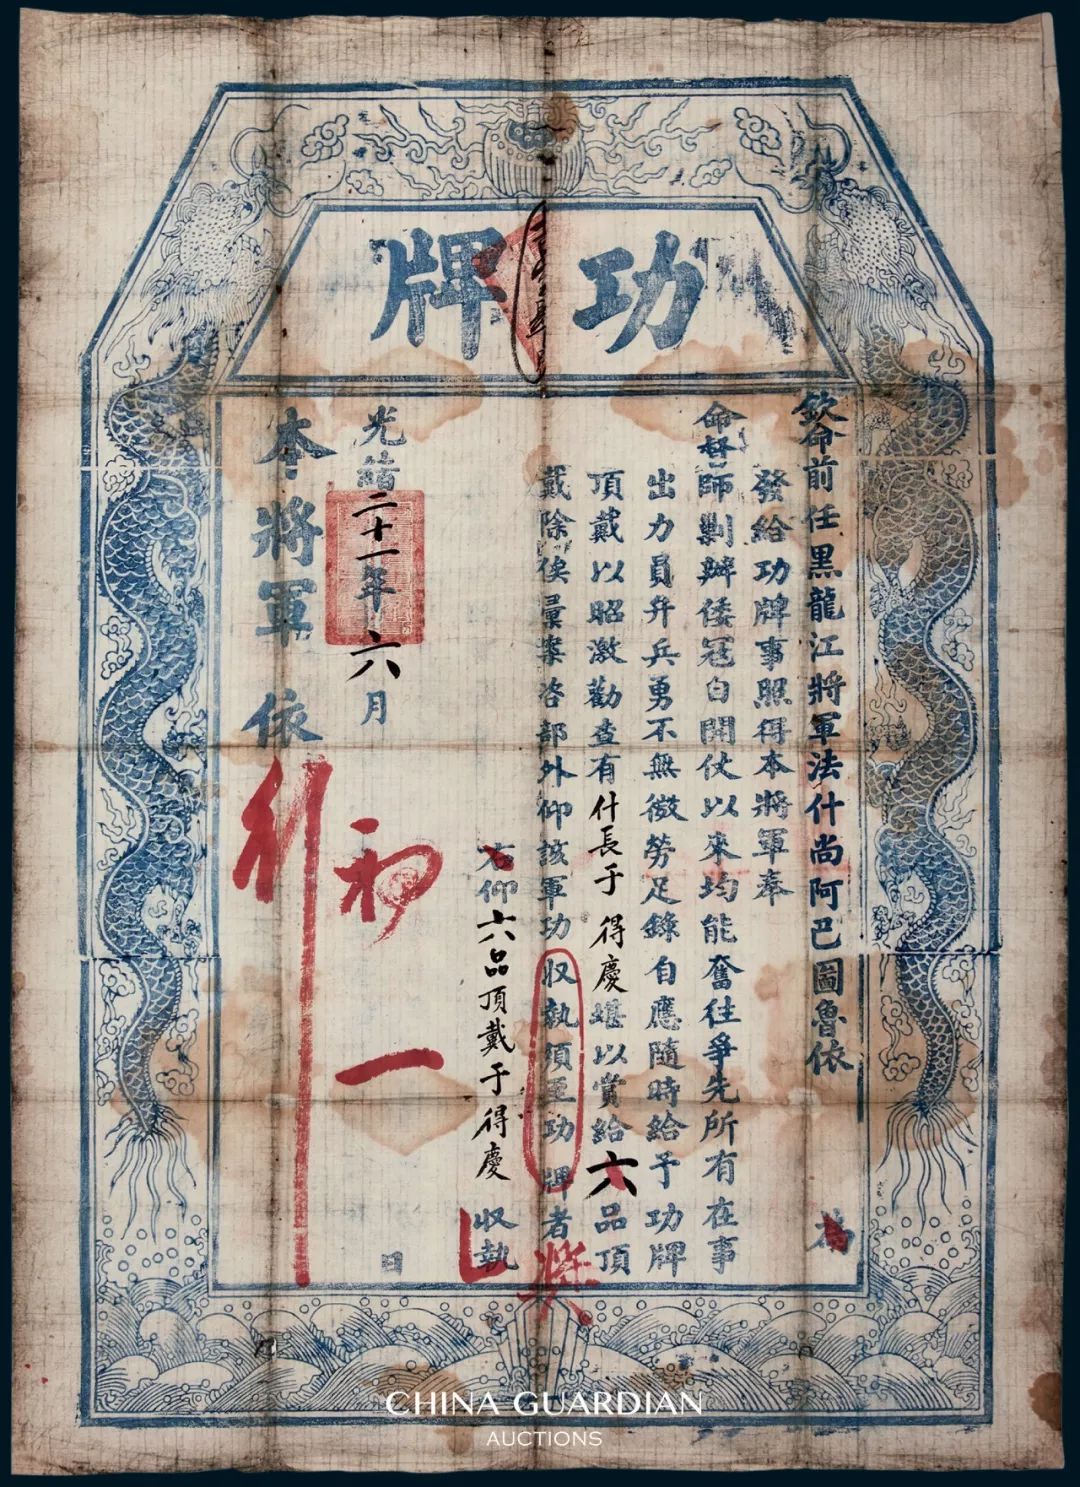 功牌
欽命前任黑龍江將軍法什尚阿巴圖魯依 為
發給功牌事照得本將軍奉
命督師剿辦倭冦自開仗以來均能奮往爭先所有在事
出力員弁兵勇不無微勞足錄自應隨時給予功牌
頂戴以昭激勸查有什長于得慶堪以賞給六品頂
戴除俟彙案咨部外仰該軍功收執須至功牌者
獎
右仰六品頂戴于得慶收執
光緒二十一年六月初一日
本將軍依 行
CHINA GUARDIAN
AUCTIONS